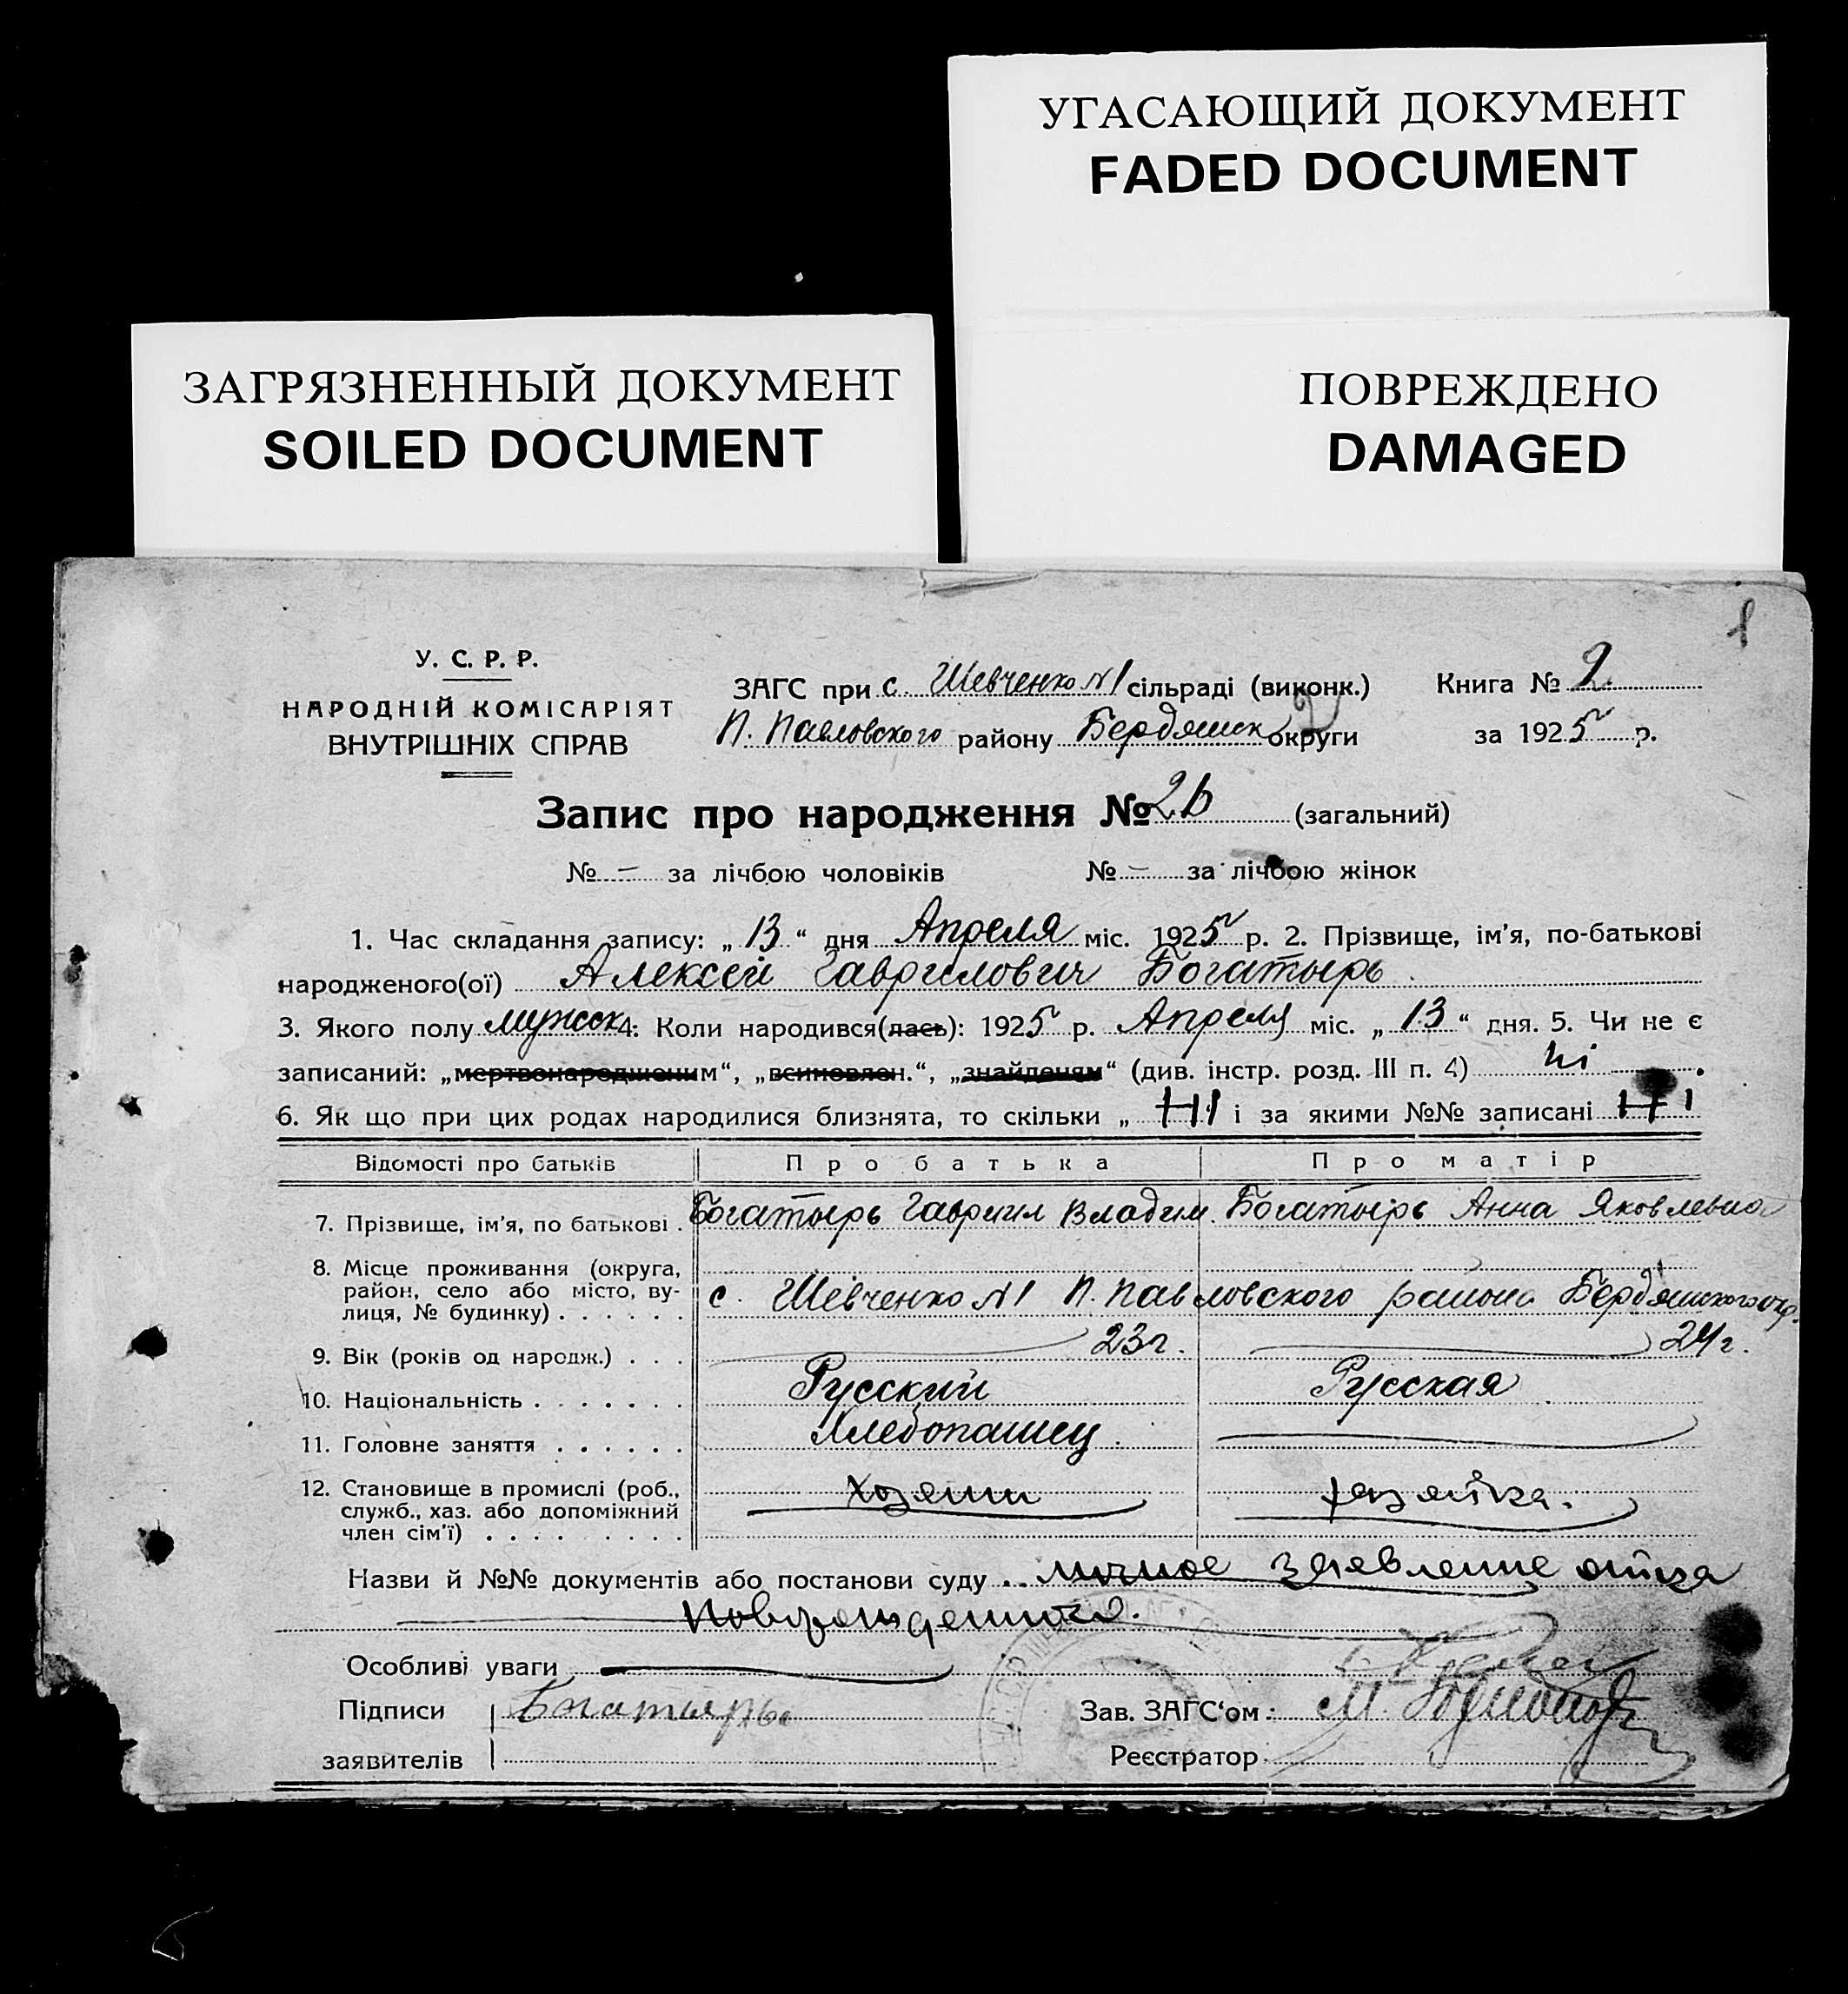 УГАСАЮЩИЙ ДОКУМЕНТ
FADED DOCUMENT
ЗАГРЯЗНЕННЫЙ ДОКУМЕНТ
SOILED DOCUMENT
ПОВРЕЖДЕНО
DAMAGED
У. С. Р. Р.
НАРОДНІЙ КОМІСАРІЯТ
ВНУТРІШНІХ СПРАВ
ЗАГС при с. Шевченко №1 сільраді (виконк.)
П. Павловского району Бердянск округи
Книга № 2
за 1925 р.
Запис про народження № (загальний)
№ – за лічбою чоловіків № – за лічбою жінок
1. Час складання запису: „13“ дня Апреля міс. 1925 р. 2. Прізвище, ім’я, по-батькові
народженого(ої) Алексей Гаврилович Богатырь
3. Якого полу мужск 4: Коли народився(лась): 1925 р. Апреля міс. „13“ дня. 5. Чи не є
записаний: „мертвонародженим“, „всиновлен.“, „знайденям“ (див. інстр. розд. III п. 4) ні
6. Як що при цих родах народилися близнята, то скільки „ Ні і за якими №№ записані Ні
Відомості про батьків Про батька Про матір
7. Прізвище, ім’я, по батькові . Богатырь Гавриил Владим. Богатырь Анна Яковлевна
8. Місце проживання (округа,
район, село або місто, ву-
лиця, № будинку) . . . . . . с. Шевченко №1 П. Павловского района Бердянского окр.
9. Вік (років од народж.) . . . 23г. 24г.
10. Національність . . . . . . . Русский Русская
11. Головне заняття . . . . . . Хлебопашец
12. Становище в промислі (роб.,
служб., хаз. або допоміжний
член сім’ї) . . . . . . . . хозяин хозяйка.
Назви й №№ документів або постанови суду . . личное заявление отца
новорожденного.
Особливі уваги
Підписи Богатырь
заявителів
Зав. ЗАГС‘ом :
Реєстратор